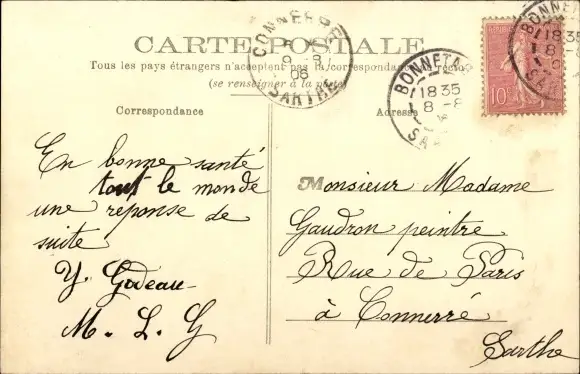 CARTE POSTALE
Tous les pays étrangers n'acceptent pas la correspondance au recto
(se renseigner à la poste)
Correspondance
Adresse
En bonne santé
tout le monde
une réponse de
suite
Y. Godeau
M. L. G
Monsieur Madame
Gaudron peintre
Rue de Paris
à Connerré
Sarthe
CONNERRÉ
9 -8
06
SARTHE
BONNETABLE
18 35
8 -8
BONNET
18 35
8 -8
10c